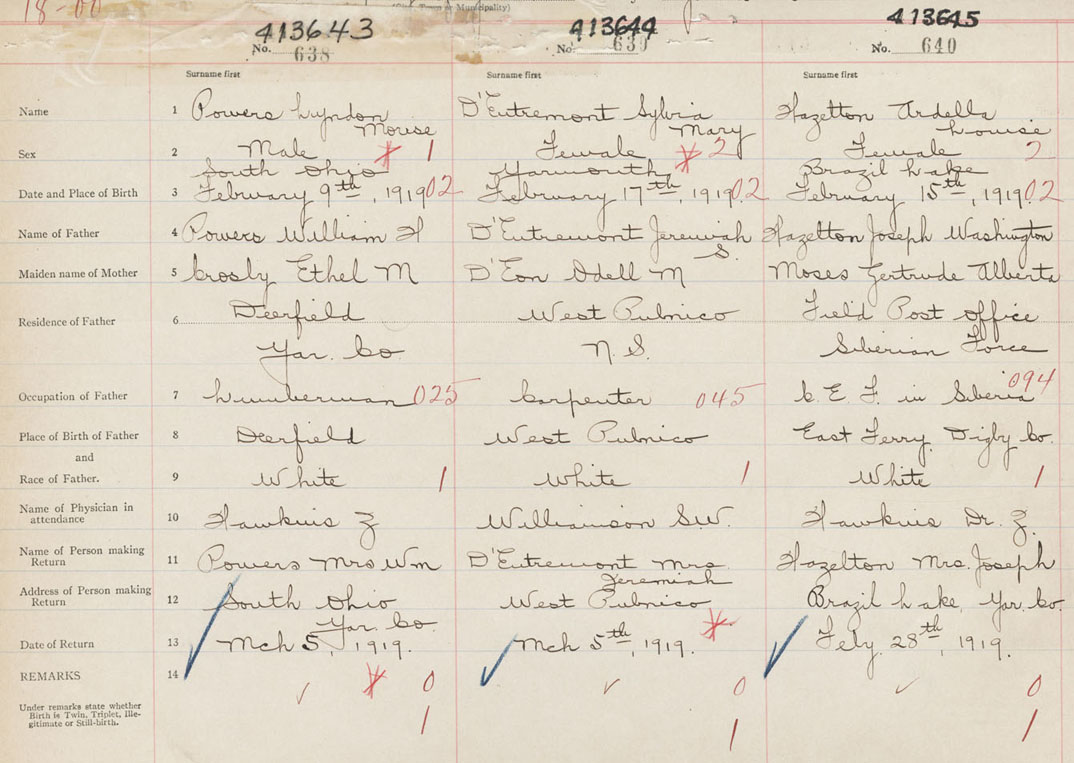 18-00
(City, Town or Municipality)
413643 413644 413645
No. 638 No. 639 No. 640
Surname first Surname first Surname first
Name 1 Powers Lyndon D'Entremont Sylvia Hazelton Ardella
Mouise Mary Louise
Sex 2 Male 1 Female 2 Female 2
South Ohio Yarmouth Brazil Lake
Date and Place of Birth 3 February 9th, 1919 02 February 17th, 1919 02 February 15th, 1919. 02
Name of Father 4 Powers William H D'Entremont Jeremiah Hazelton Joseph Washington
S.
Maiden name of Mother 5 Crosby Ethel M D'Eon Odell M Moses Gertrude Alberta
Residence of Father 6 Deerfield West Pubnico Field Post office
Yar. Co N. S. Siberian Force
094
Occupation of Father 7 Lumberman 025 Carpenter 045 C. E. F. in Siberia
Place of Birth of Father 8 Deerfield West Pubnico East Ferry. Digby Co.
and
Race of Father. 9 White 1 White 1 White 1
Name of Physician in
attendance 10 Hawkins Z Williamson S.W. Hawkins Dr. Z.
Name of Person making
Return 11 Powers Mrs Wm D'Entremont Mrs. Hazelton Mrs. Joseph
Jeremiah
Address of Person making
Return 12 South Ohio West Pubnico Brazil Lake, Yar. Co.
Yar. Co.
Date of Return 13 Mch 5, 1919. Mch 5th, 1919. Feby. 28th, 1919.
REMARKS 14 0 0 0
Under remarks state whether
Birth is Twin, Triplet, Ille-
gitimate or Still-birth.
1 1 1